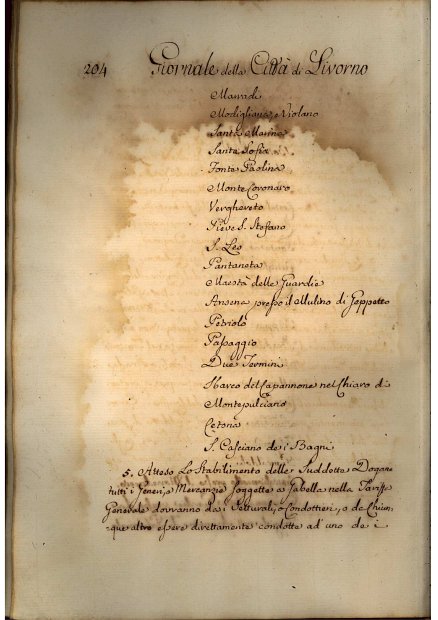 204 Giornale della Città di Livorno
Marradi
Modigliana, e Violano
Santa Marina
Santa Sofia
Fonte Paolina
Monte Coronaro
Verghereto
Pieve S. Stefano
S. Leo
Pantaneta
Maestà delle Guardie
Ansena presso il Mulino di Geppetto
Petriolo
Passaggio
Due Termini
Sbarco del Capannone nel Chiaro di
Montepulciano
Cetona
S. Casciano de i Bagni
5. Atteso Lo Stabilimento delle Suddette Dogane
tutti i Generi, e Mercanzie soggette a Gabella nella Tariffa
Generale dovranno da i Vetturali, o Condottieri, o da Chiun-
que altro essere direttamente condotte ad uno de i